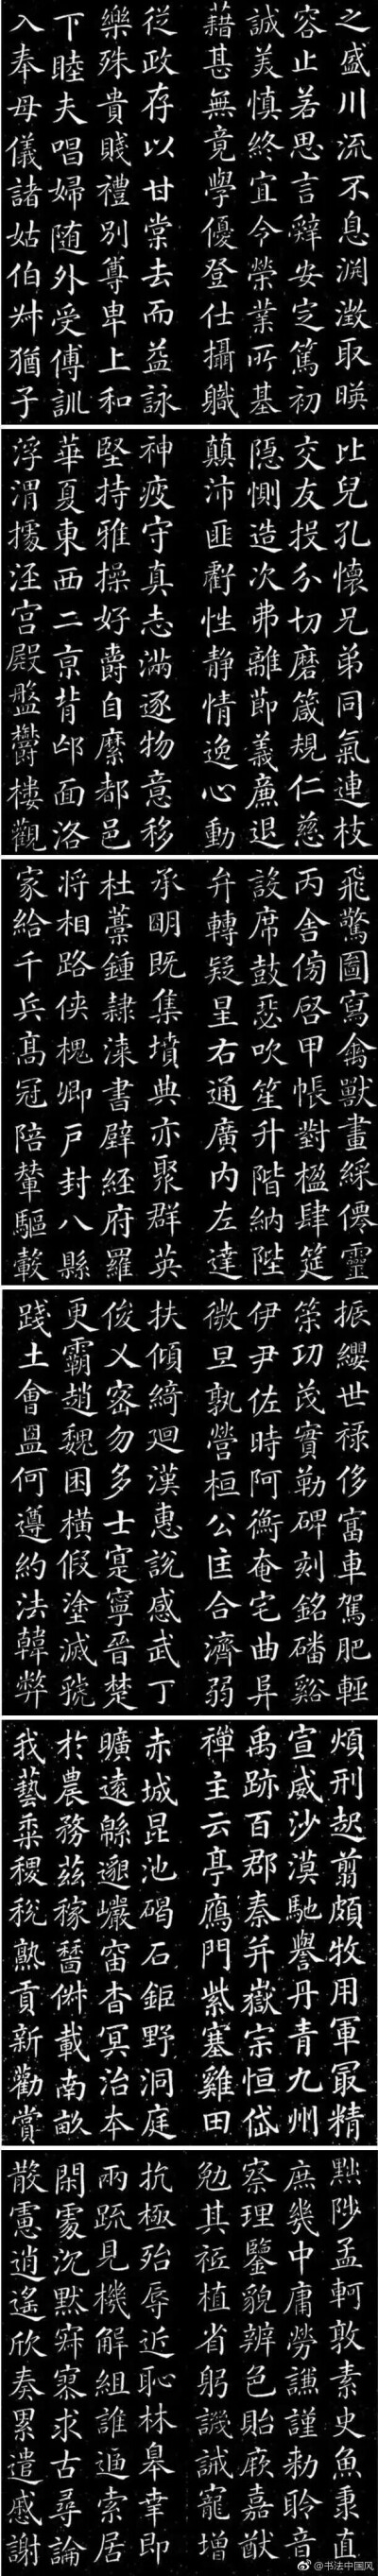 之盛川流不息渊澂取暎
容止若思言辤安定篤初
誠美慎終宜令榮業所基
藉甚無竟學優登仕攝職
從政存以甘棠去而益詠
樂殊貴賤禮別尊卑上和
下睦夫唱婦随外受傅訓
入奉母儀諸姑伯叔猶子
比兒孔懐兄弟同氣連枝
交友投分切磨箴規仁慈
隠惻造次弗離節義廉退
顛沛匪虧性静情逸心動
神疲守真志滿逐物意移
堅持雅操好爵自縻都邑
華夏東西二京背邙面洛
浮渭據涇宫殿盤欝楼觀
飛驚圖寫禽獸畫綵僊靈
丙舍傍啓甲帳對楹肆筵
設席鼓瑟吹笙升階納陛
弁轉疑星右通廣内左達
承明既集墳典亦聚群英
杜藁鍾隷漆書壁經府羅
将相路侠槐卿戸封八縣
家給千兵高冠陪輦驅轂
振纓世禄侈富車駕肥輕
策功茂實勒碑刻銘磻谿
伊尹佐時阿衡奄宅曲阜
微旦孰營桓公匡合濟弱
扶傾綺迴漢惠説感武丁
俊乂密勿多士寔寧晉楚
更霸趙魏困橫假塗滅虢
踐土會盟何遵約法韓弊
煩刑起翦頗牧用軍最精
宣威沙漠馳譽丹青九州
禹跡百郡秦并嶽宗恒岱
禪主云亭鴈門紫塞雞田
赤城昆池碣石鉅野洞庭
曠遠緜邈巖岫杳冥治本
於農務茲稼穡俶載南畝
我藝黍稷稅熟貢新勸賞
黜陟孟軻敦素史魚秉直
庶幾中庸勞謙謹勅聆音
察理鑒貌辨色貽厥嘉猷
勉其祗植省躬譏誡寵增
抗極殆辱近恥林皋幸即
兩疏見機解組誰逼索居
閑處沉默寂寥求古尋論
散慮逍遙欣奏累遣慼謝
@书法中国风